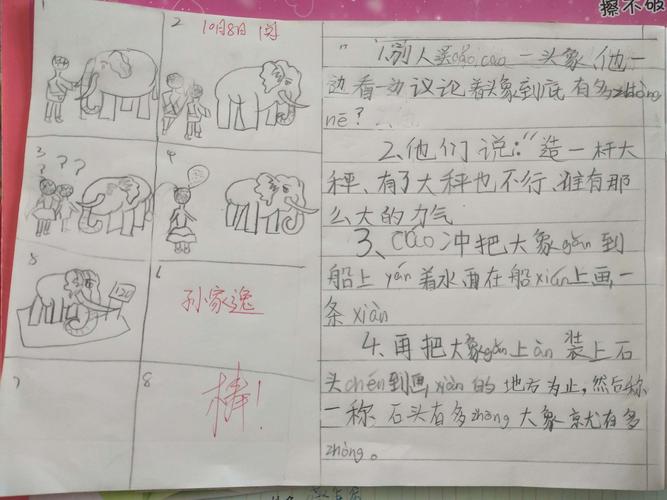 擦不破
1
2
10月8日
3
? ? ?
4
5
6
孙家逸
7
8
棒!
1.别人送cáo cao 一头象,他一
边看一边议论着象到底有多zhòng
nē?
2.他们说:"造一杆大
秤、有了大秤也不行,谁有那
么大的力气
3、cáo冲把大象gǎn到
船上 yán着水面在船xián上画一
条xiàn
4.再把大象gǎn上àn 装上石
头chén到画xiàn的地方为止,然后称
一称 石头有多zhòng 大象 就有多
zhòng。